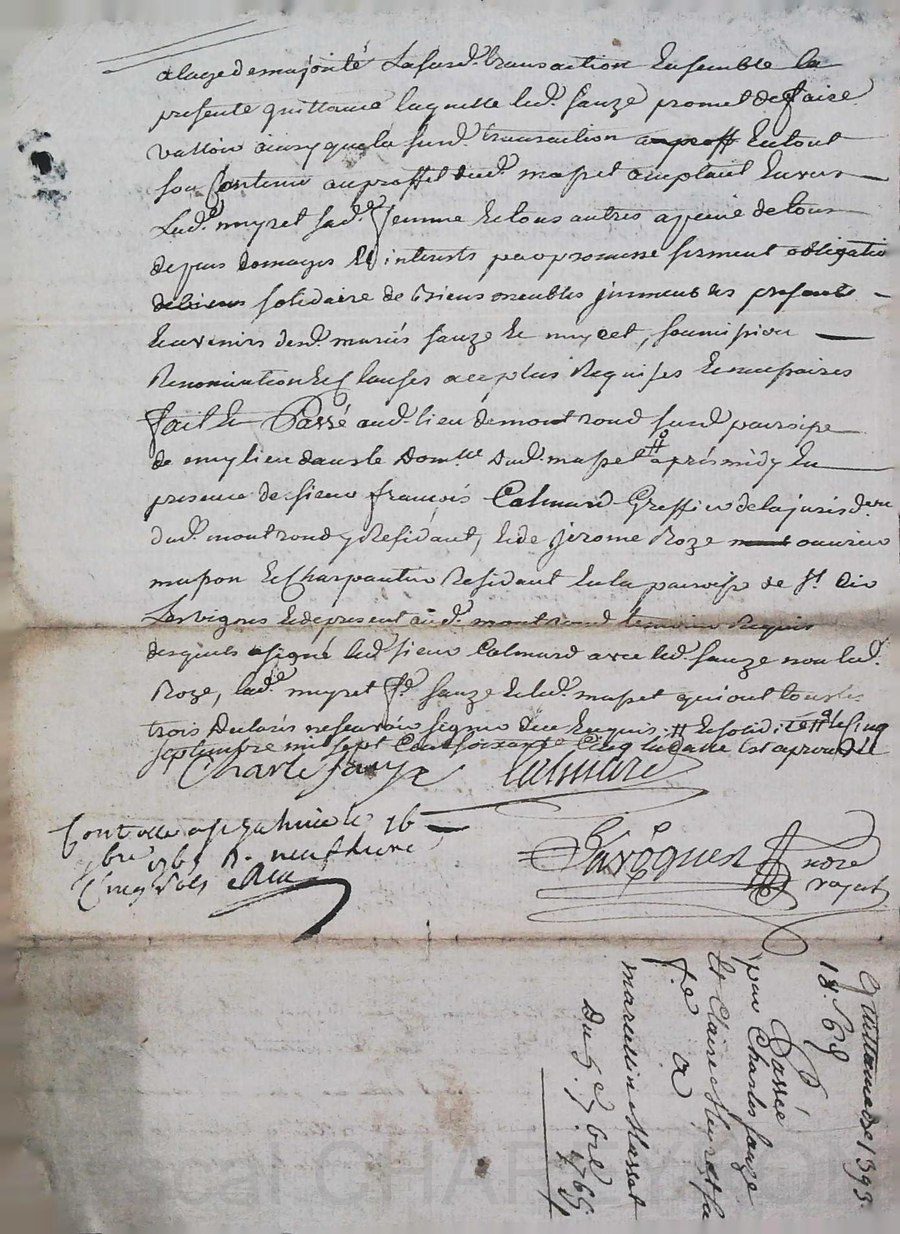 alage de majorité Lasusd.e transaction Ensemble la
presente quittance laquelle led. sauze promet defaire
valloir ainsy que la susd.e transaction Entout
son Contenu auproffit dud. masset
Led. meyret sad.e femme Et tous autres apeine de tous
depens Domages Et interests par promesse serment obligation
solidaire de biens meubles jmmeubles presents
Et avenirs desd. mariés sauze Et meyret, soumission
Renonciation Et Clauses Requises Et necessaires
fait Et Passé aud. lieu demontrond susd. paroisse
de dans le Dom.lle Dud. masset apres midy En
presence de sieur françois Calmard Greffier de la jurisd.on
dud. montrond y Residant, et de jerome Roze ouvrier
masson Et Charpantier Residant En la paroisse de S.t
Lasvignes Et de present aud. montrond temoins Requis
desquels a signé led. sieur Calmard avec led. sauze non led.
Roze, lad.e meyret f.e sauze Et led. masset qui ont tous les
trois Declarés ne scavoir signer de ce Enquis, Et solid.
septembre mil sept Cent soixante Cinq la
Charle sauze Calmard
Controllé a le 16
7bre 1765 R. neuf livres
Cinq sols
no.re
royal
Quittance de 1393.
18. S 6 D
Passée
par Charles sauze
Et Claire Meyret sa
f.e a
marcellin Masset
Du 5.e 7bre 1765